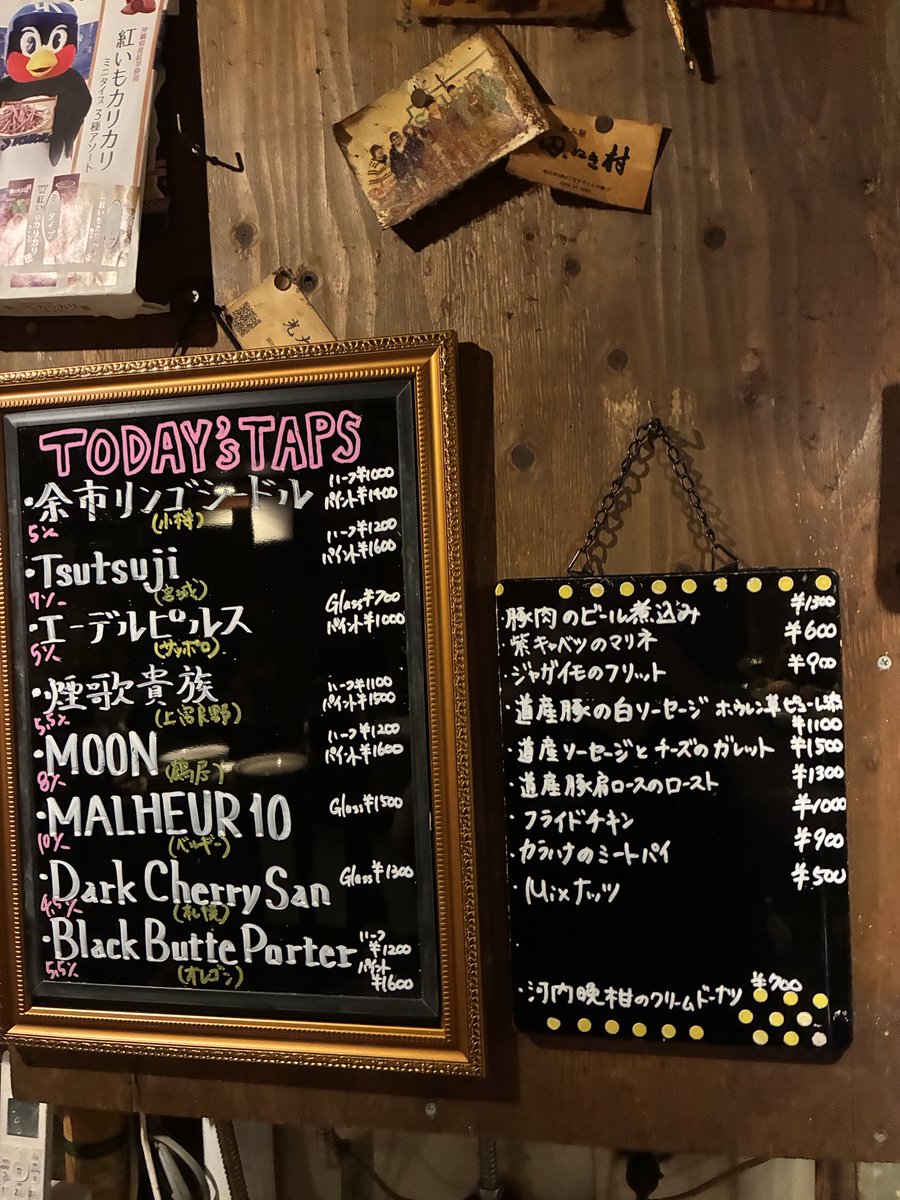 沖縄県産紅芋使用
紅いもカリカリ
ミニタイプ 3種アソート
紅いもカリカリ
ぬき村
TODAY'S TAPS
・余市リンゴシードル ハーフ¥1000
パイント¥1400
5% (小樽)
・Tsutsuji ハーフ¥1200
パイント¥1600
7% (宮城)
・エーデルピルス Glass¥700
パイント¥1000
5% (サッポロ)
・煙歌貴族 ハーフ¥1100
パイント¥1500
5.5% (上富良野)
・MOON ハーフ¥1200
パイント¥1600
8% (鶴居)
・MALHEUR 10 Glass¥1500
10% (ベルギー)
・Dark Cherry San Glass¥1300
4.5% (札幌)
・Black Butte Porter ハーフ
¥1200
パイント
¥1600
5.5% (オレゴン)
・豚肉のビール煮込み ¥1300
・紫キャベツのマリネ ¥600
・ジャガイモのフリット ¥900
・道産豚の白ソーセージ ホウレン草ピューレ添
¥1100
・道産ソーセージとチーズのガレット ¥1500
・道産豚肩ロースのロースト ¥1300
・フライドチキン ¥1000
・カラハナのミートパイ ¥900
・Mixナッツ ¥500
・河内晩柑のクリームドーナツ ¥700